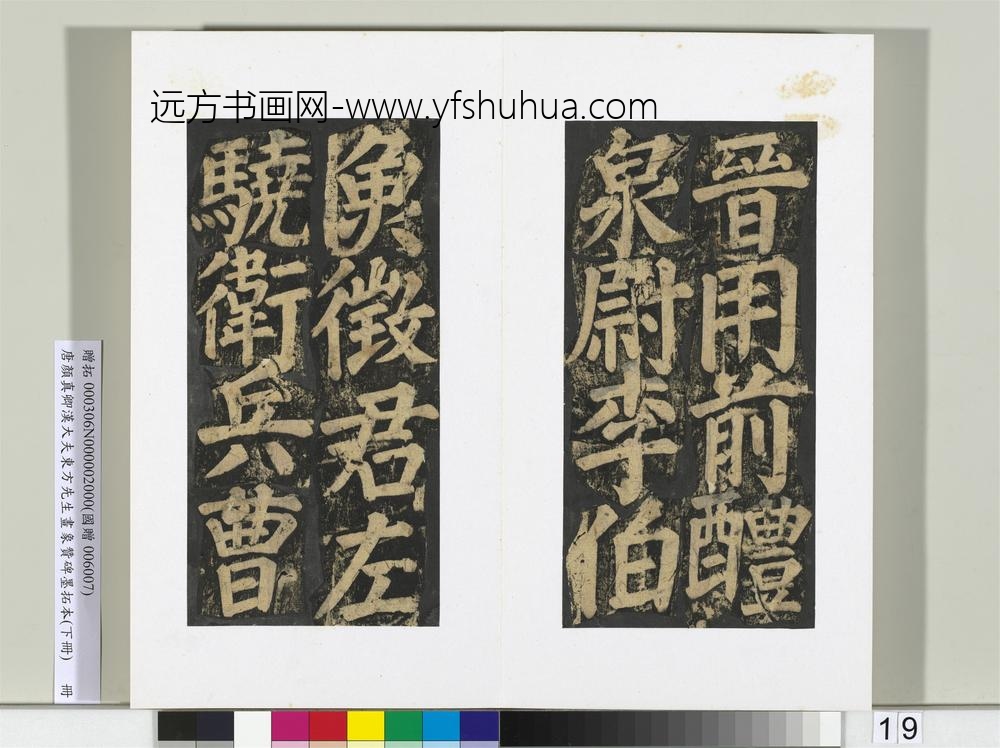 远方书画网-www.yfshuhua.com
晉用前醴
泉尉李伯
魚徵君左
驍衛兵曹
贈拓 000306N000002000(國贈 006007)
唐顏真卿漢大夫東方先生畫象贊碑墨拓本(下冊) 冊
19